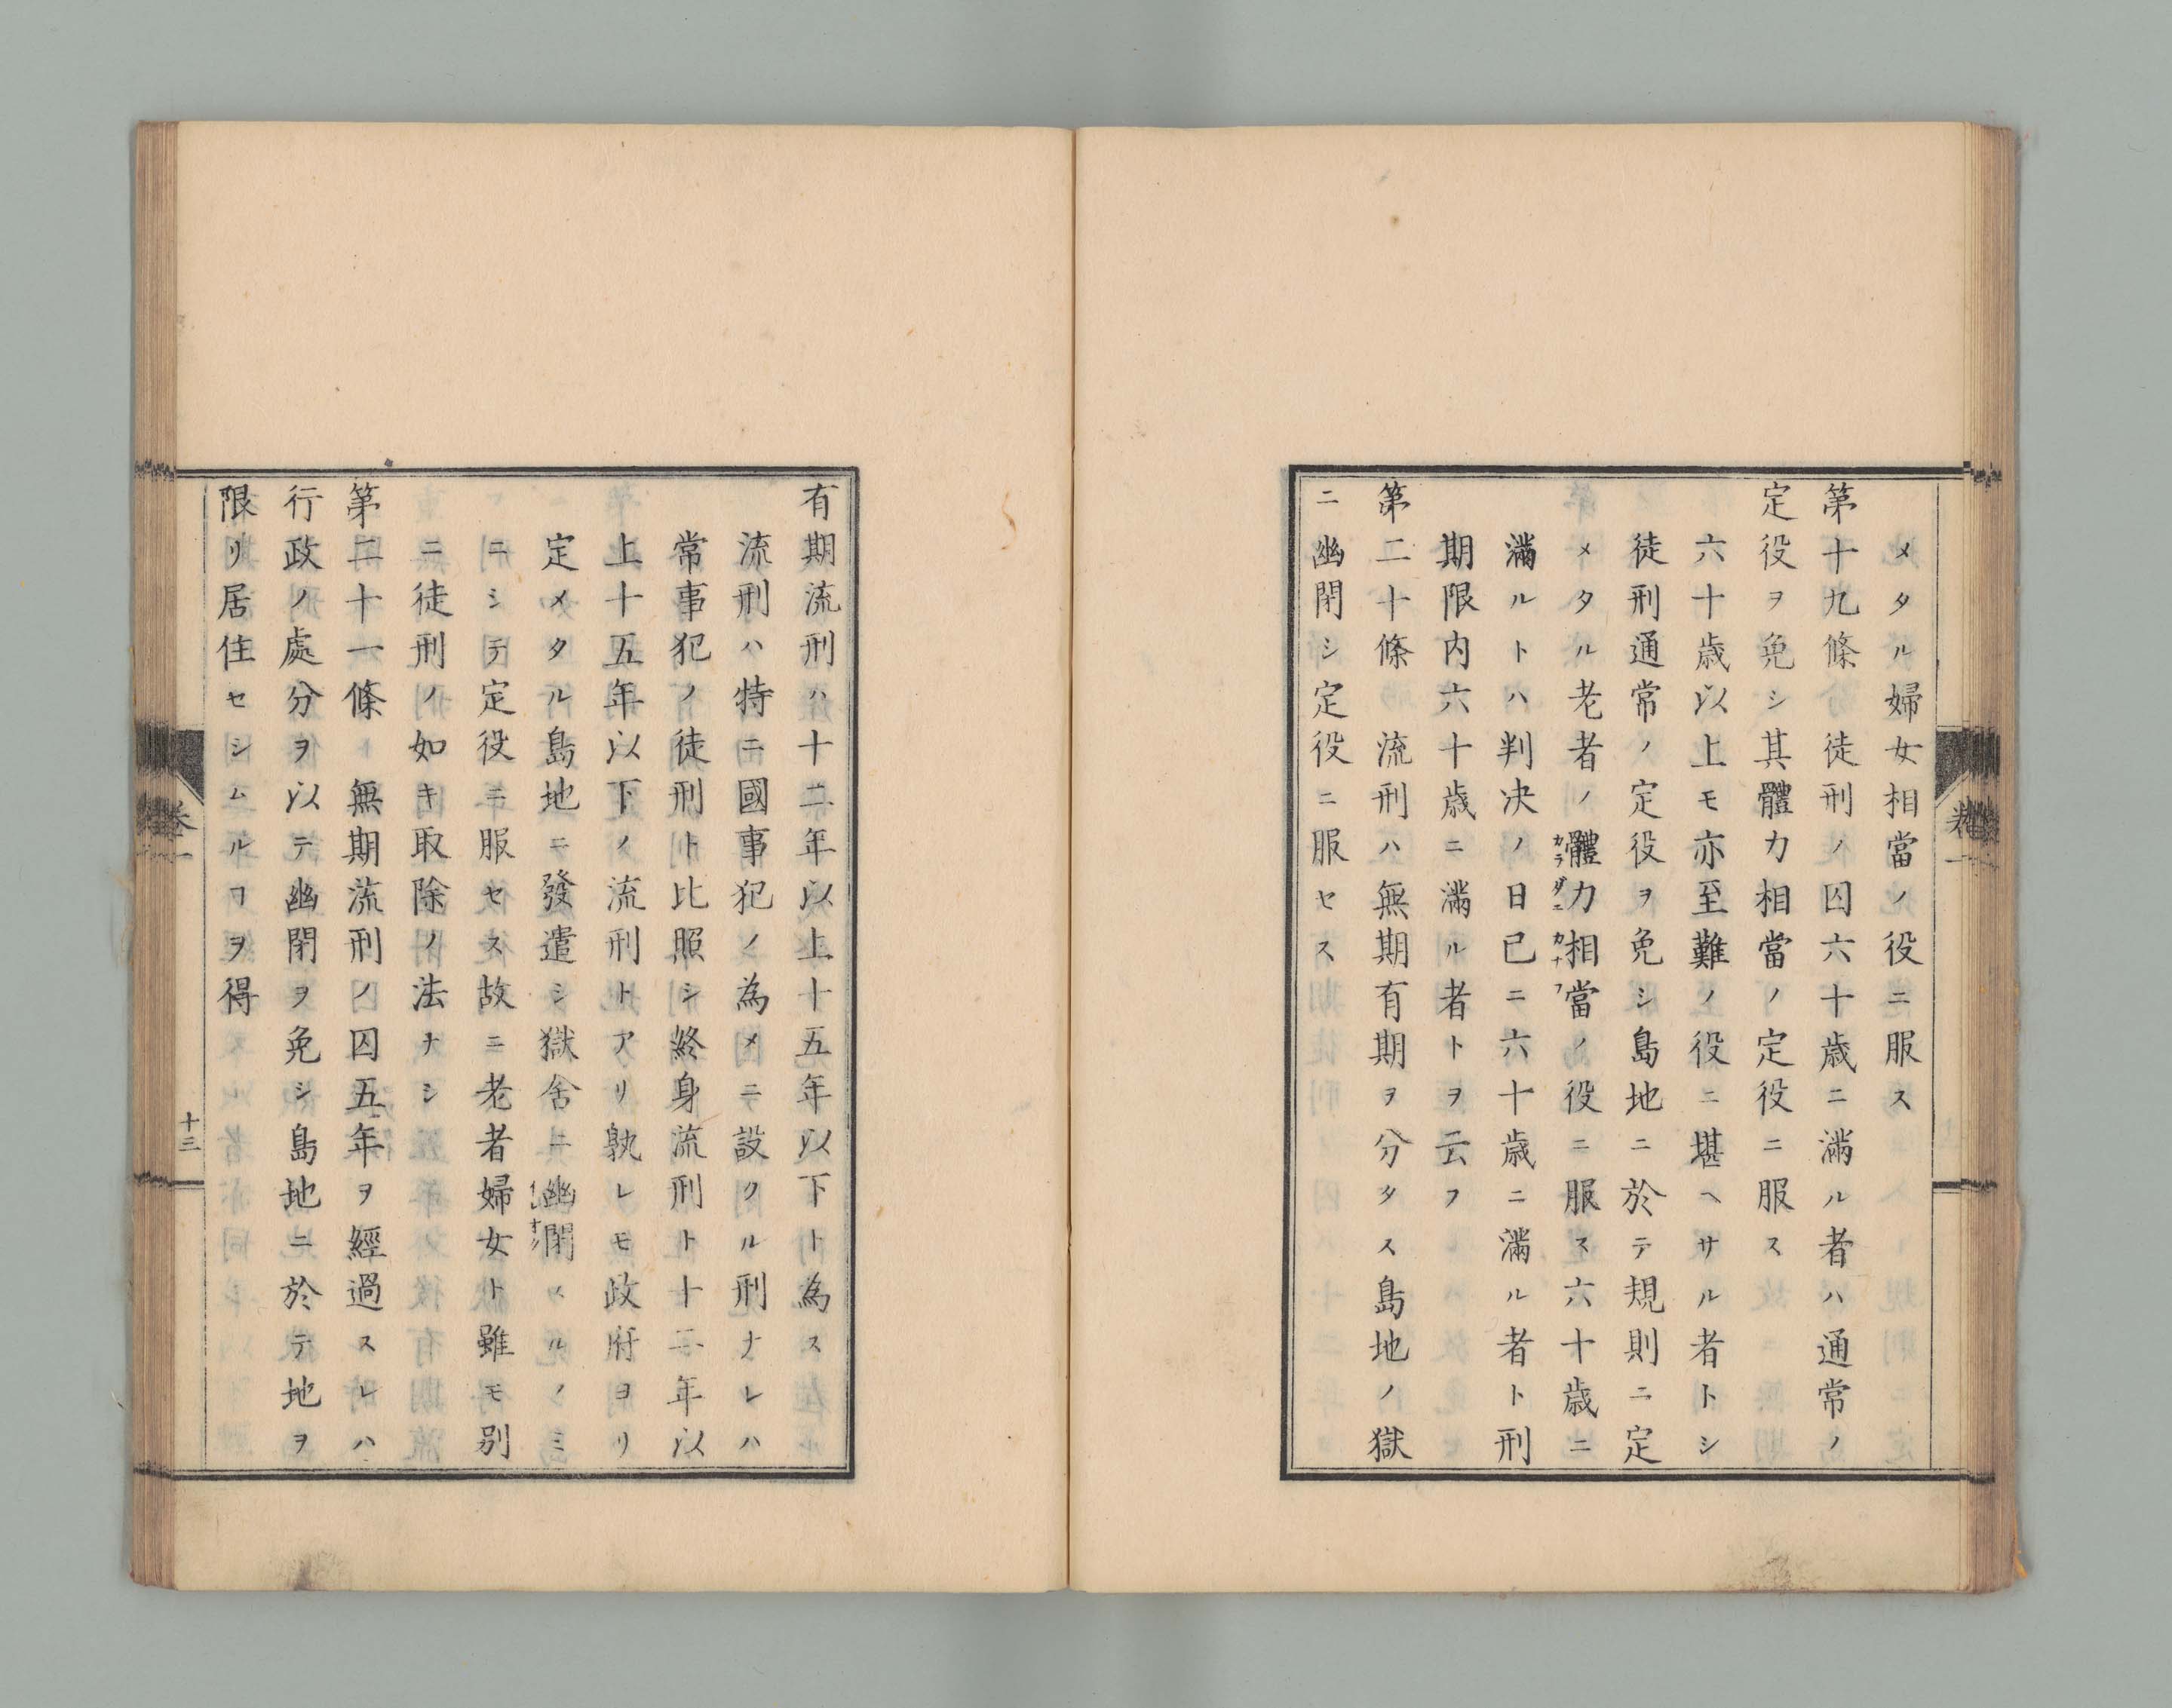 メタル婦女相當ノ役ニ服ス
第十九條徒刑ノ囚六十歳ニ滿ル者ハ通常ノ
定役ヲ免シ其體力相當ノ定役ニ服ス
六十歳以上モ亦至難ノ役ニ堪ヘサル者トシ
徒刑通常ノ定役ヲ免シ島地ニ於テ規則ニ定
メタル老者ノ體力相當ノ役ニ服ス六十歳ニ
カラダニカナフ
滿ルトハ判决ノ日已ニ六十歳ニ滿ル者ト刑
期限内六十歳ニ滿ル者トヲ云フ
第二十條　流刑ハ無期有期ヲ分タス島地ノ獄
ニ幽閉シ定役ニ服セス
卷一
有期流刑ハ十二年以上十五年以下ト為ス
流刑ハ特ニ國事犯ノ為メニ設クル刑ナレハ
常事犯ノ徒刑ト比照シ終身流刑ト十二年以
上十五年以下ノ流刑トアリ孰レモ政府ヨリ
定メタル島地ニ發遣シ獄舍ニ幽閉スルノミ
ニシテ定役ニ服セス故ニ老者婦女ト雖モ別
ニ徒刑ノ如キ取除ノ法ナシ
第二十一條　無期流刑ノ囚五年ヲ經過スレハ
行政ノ處分ヲ以テ幽閉ヲ免シ島地ニ於テ地ヲ
限リ居住セシムルヿヲ得
卷一
十三